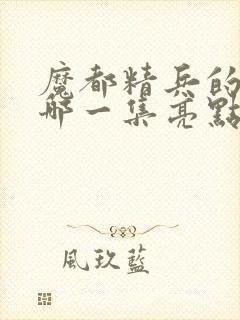 魔都精兵的
哪一集亮點
風玖藍